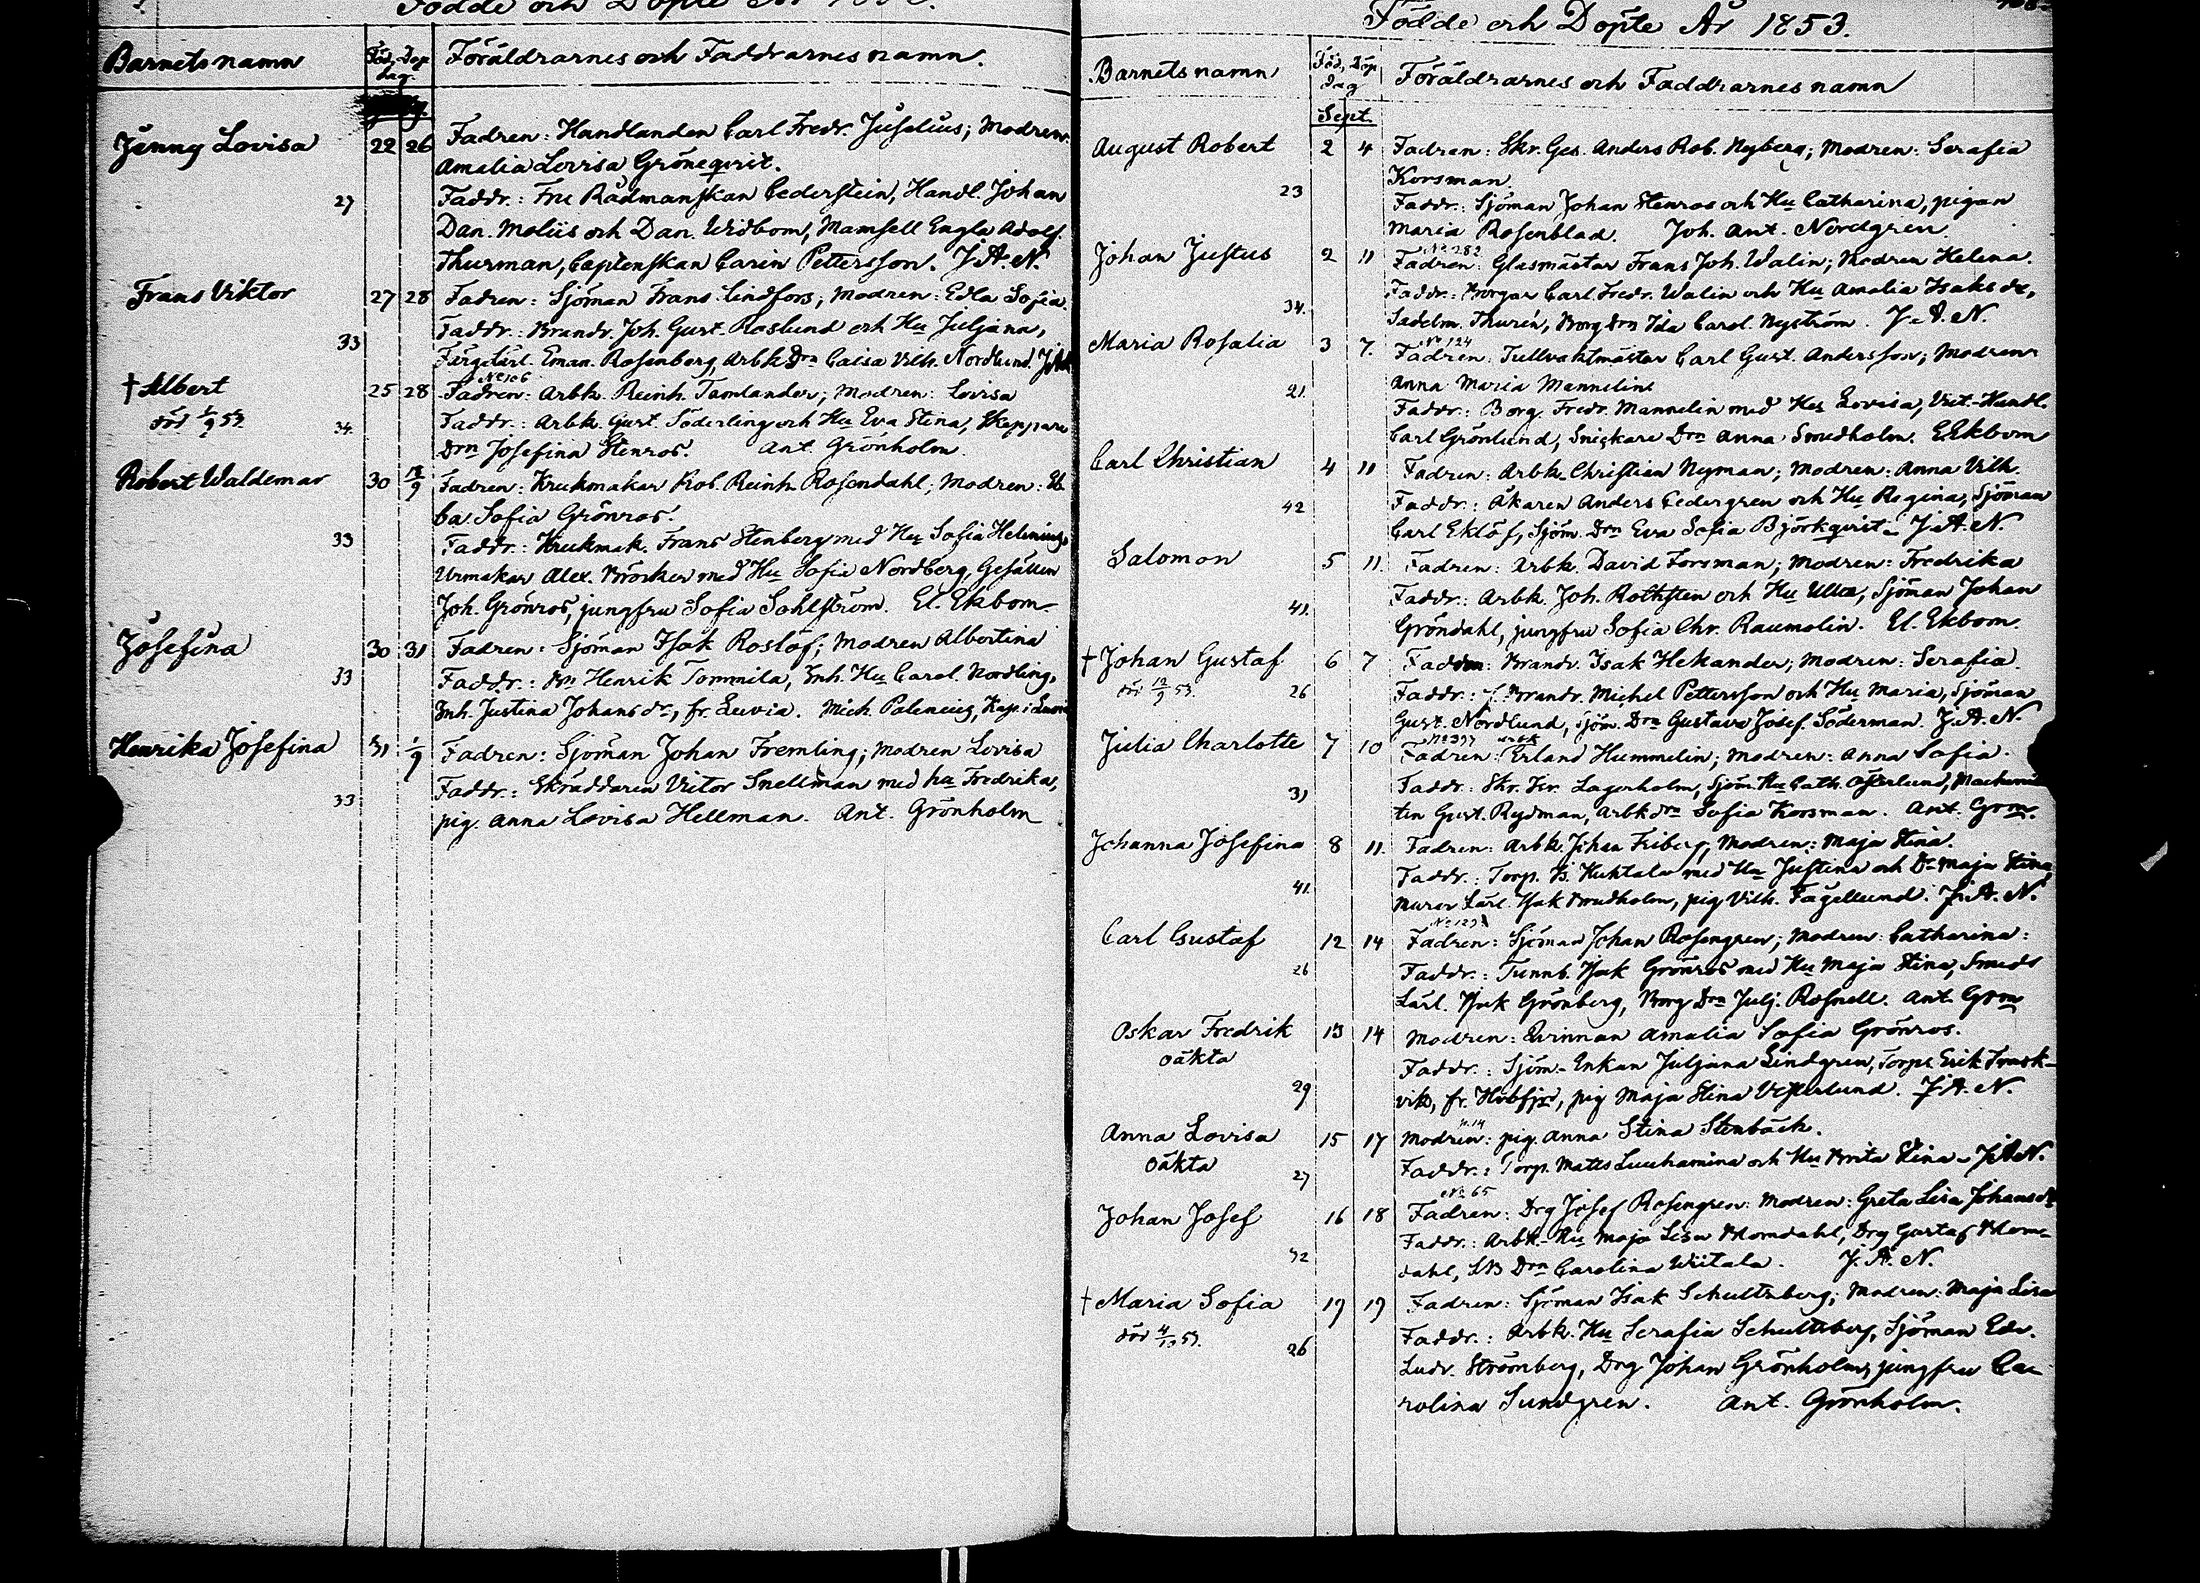 Födde och Döpte År 1853.
Barnets namn Föd. Döp. dag. Föräldrarnes och Faddrarnes namn.
Jenny Lovisa 22 26 Fadren: Handlanden Carl Fredr. Juselius; Modren
Amalia Lovisa Grönqvist.
27 Faddr.: Fru Rådmanskan Cederstein, Handl. Johan
Dan. Moliis och Dan. Widbom, Mamsell Engla Adolf.
Thurman, Captenskan Carin Pettersson. J. A. N.
Frans Viktor 27 28 Fadren: Sjöman Frans Lindfors; Modren: Edla Sofia.
33 Faddr.: Brandv. Joh. Gust. Roslund och Hu Juljana,
Färg.lärl. Eman. Rosenberg, Arbk Drn Caisa Vilh. Nordlund. J.A.N.
No 106
† Albert 25 28 Fadren: Arbk. Reinh. Tamlander; Modren: Lovisa
död 1/9 53. 34 Faddr.: Arbk. Gust. Söderling och Hu Eva Stina, Skeppare
Drn Josefina Stenros. Ant. Grönholm.
Robert Waldemar 30 18/9 Fadren: Krukmakar Rob. Reinh. Rosendahl; Modren: Ul-
ba Sofia Grönros.
33 Faddr.: Krukmak. Frans Stenberg med Hu Sofia Helenius,
Urmakar Alex. Bröcker med Hu Sofia Nordberg, Gesällen
Joh. Grönros, jungfru Sofia Sohlström. El. Ekbom
Josefina 30 31 Fadren: Sjöman Isak Roslöf; Modren Albertina
33 Faddr.: Bn Henrik Tommila, Inh. Hu Carol. Nordling,
Inh. Justina Johansdr, fr. Luvia. Mich. Palenius, Kap. i Luvia
Henrika Josefina 31 1/9 Fadren: Sjöman Johan Fremling; Modren Lovisa
33 Faddr.: Skräddaren Victor Snellman med hu Fredrika,
pig. Anna Lovisa Hellman. Ant. Grönholm
Födde och Döpte År 1853.
Barnets namn Föd. Döp. dag Föräldrarnes och Faddrarnes namn
Sept.
August Robert 2 4 Fadren: Skr. Ges. Anders Rob. Nyberg; Modren: Serafia
Korsman.
23 Faddr.: Sjöman Johan Stenros och Hu Catharina, pigan
Maria Rosenblad. Joh. Ant. Nordgren.
No 282
Johan Justus 2 11 Fadren: Glasmästar Frans Joh. Walin; Modren Helena.
34. Faddr.: Borgar Carl Fredr. Walin och Hu Amalia Isaksdr,
Sadelm. Thurén, Borg Drn Ida Carol. Nyström. J. A. N.
No 124
Maria Rosalia 3 7. Fadren: Tullvaktmästar Carl Gust. Andersson; Modren
Anna Maria Mannelin
21. Faddr.: Borg. Fredr. Mannelin med Hu Lovisa, Vict.-Handl.
Carl Grönlund, Snickare Drn Anna Smedholm. E. Ekbom
Carl Christian 4 11 Fadren: Arbk. Christian Nyman; Modren: Anna Vilh.
42 Faddr.: Åkaren Anders Cedergren och Hu Regina, Sjöman
Carl Eklöf, Sjöm. Drn Eva Sofia Björkqvist. J. A. N.
Salomon 5 11 Fadren: Arbk. David Forsman; Modren: Fredrika
41. Faddr.: Arbk. Joh. Rothsten och Hu Ulla, Sjöman Johan
Gröndahl, jungfru Sofia Chr. Raumolin. El. Ekbom
† Johan Gustaf 6 7 Fadren: Brandv. Isak Hekander; Modren: Serafia.
död 12/9 53. 26 Faddr.: f. Brandv. Michel Pettersson och Hu Maria, Sjöman
Gust. Nordlund, Sjöm. Drn Gustava Josef. Söderman. J. A. N.
No 397 Arbk
Julia Charlotte 7 10 Fadren: Erland Hummelin; Modren: Anna Sofia.
31 Faddr.: Skr. Fr. Lagerholm, Sjöm. Hu Cath. Österlund,
ten Gust. Rydman, Arbk drn Sofia Korsman. Ant. Grm.
Johanna Josefina 8 11. Fadren: Arbk. Johan Friberg, Modren: Maja Stina.
41. Faddr.: Torp. Is. Huhtala med Hu Justina och Dr Maja Stina,
Murar Lärl. Isak Brudholm, pig Vilh. Fagellund. J. A. N.
No 129
Carl Gustaf 12 14 Fadren: Sjöman Johan Rosengren; Modren: Catharina:
26 Faddr.: Tunnb. Isak Grönros med Hu Maja Stina, Smeds
Lärl. Isak Grönberg, Borg Drn Julj. Rosnell. Ant. Grm
Oskar Fredrik 13 14 Modren: Qvinnan Amalia Sofia Grönros.
oäkta Faddr.: Sjöm.-Enkan Juljana Lindgren, Torp. Erik Trask-
29 vik, fr. Hvbfjr, pig Maja Stina Vesterlund. J. A. N.
n. 14
Anna Lovisa 15 17 Modren: pig. Anna Stina Stenbäck.
oäkta 27 Faddr.: Torp. Matts Luuhamina och Hu Brita Stina. J.A.N.
No 65
Johan Josef 16 18 Fadren: Drg Josef Rosengren: Modren: Greta Lisa Johansdr
32 Faddr.: Arbk.-Hu Maja Lisa Blomdahl, Drg Gustaf Blom-
dahl, SB Drn Carolina Wiitala. J. A. N.
† Maria Sofia 17 19 Fadren: Sjöman Isak Schultzberg; Modren: Maja Lisa
död 4/10 53. 26 Faddr.: Arbk. Hu Serafia Schultzberg, Sjöman Edv.
Ludv. Strömberg, Drg Johan Grönholm, jungfru Ca-
rolina Sundgren. Ant. Grönholm.